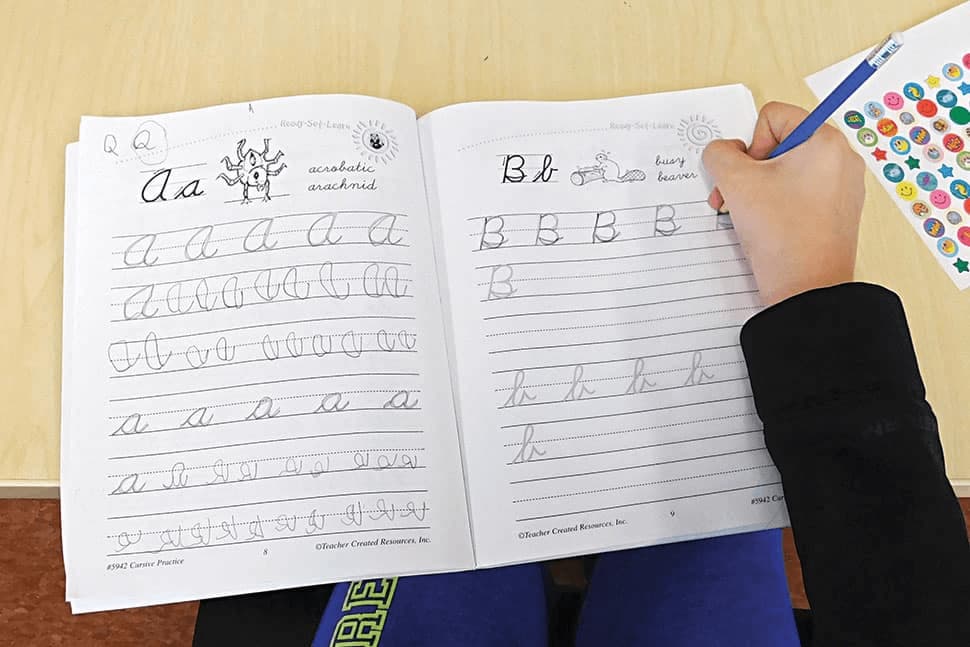 Q Q
Ready·Set·Learn
Aa
acrobatic
arachnid
A A A A A
A a a a a a a a a
a a a a a a a a a
a a a a a
a a a a a a a a a
a a a a a a a a a
#5942 Cursive Practice
8
©Teacher Created Resources, Inc.
Ready·Set·Learn
Bb
busy
beaver
B B B B B
B
b b b b
b
©Teacher Created Resources, Inc.
9
#5942
RE